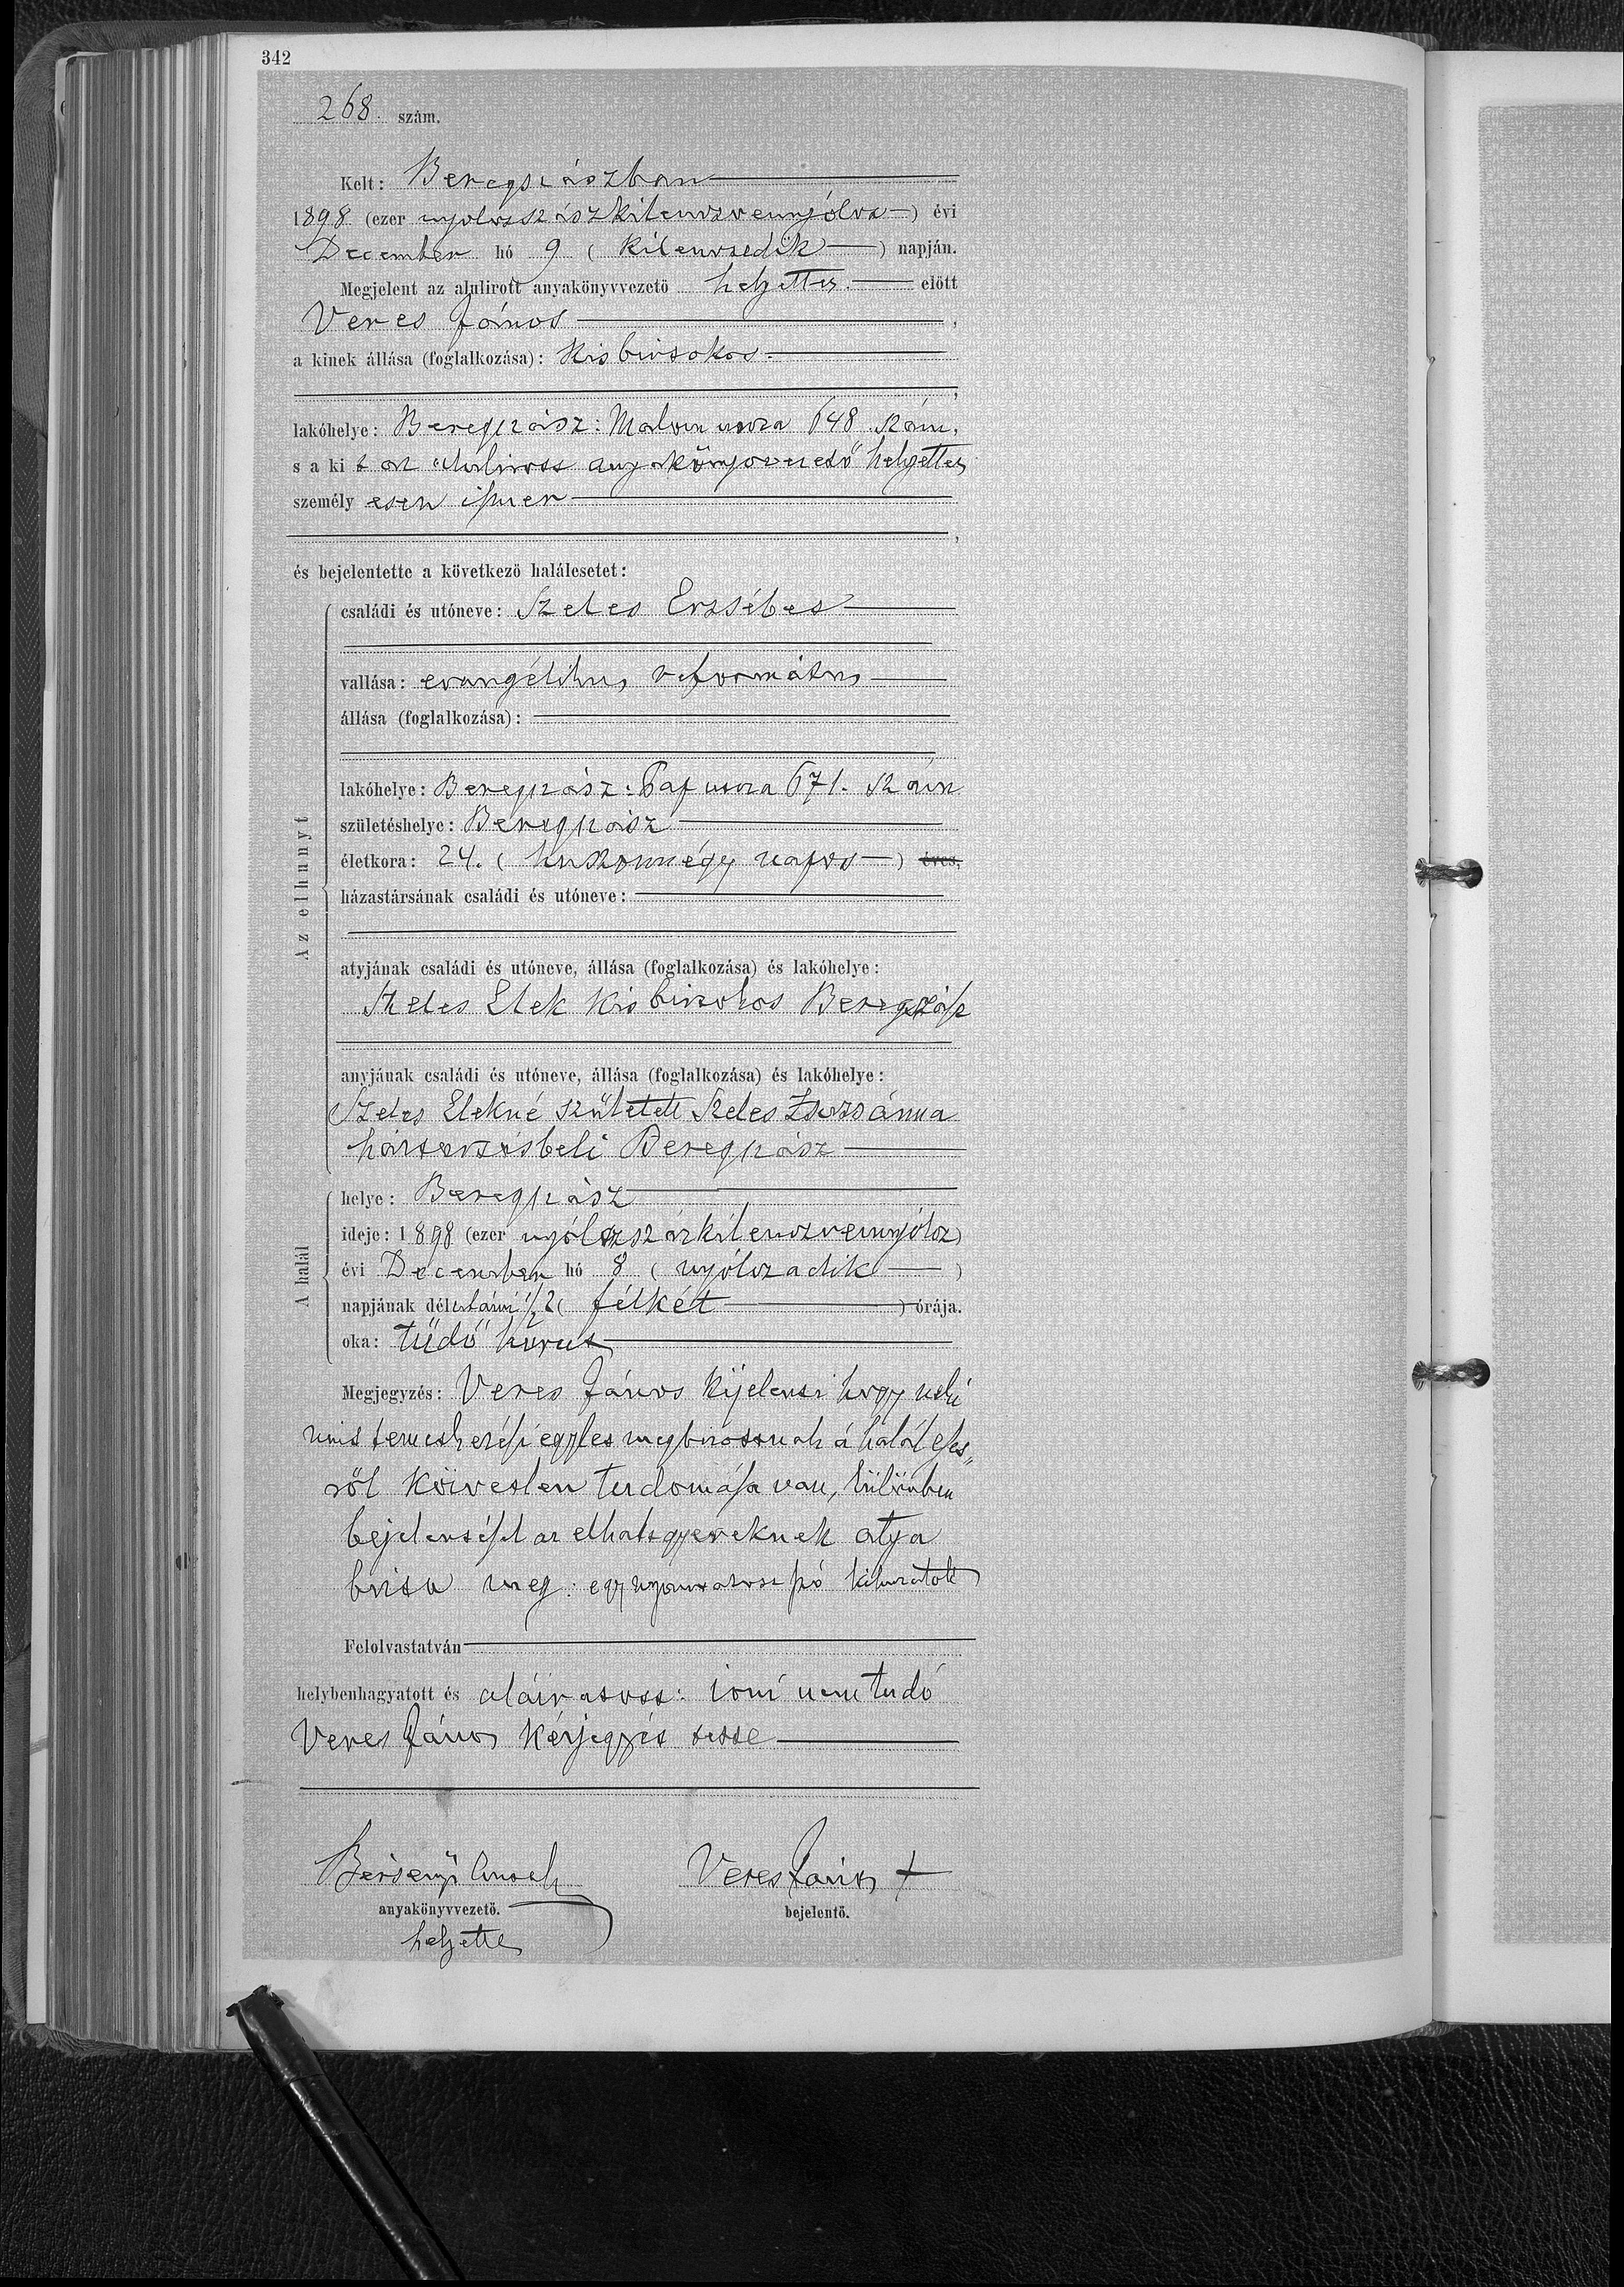 342
268. szám.
Kelt: Beregszászban
1898 (ezer nyolczszászkilenczvennyólcz) évi
December hó 9 (kilenczedik) napján.
Megjelent az alulirott anyakönyvvezető helyettes. előtt
Veres János,
a kinek állása (foglalkozása): Kisbirtokos.
lakóhelye: Beregszász: Malom utcza 648. szám.
s a kit az alulirott anyakönyvvezető helyettes
személyesen ismer,
és bejelentette a következő halálesetet:
Az elhunyt
családi és utóneve: Szeles Erzsébet
vallása: evangélikus református
állása (foglalkozása):
lakóhelye: Beregszász: utcza 671. szám
születéshelye: Beregszász
életkora: 24. (huszonnégy napos) éves.
házastársának családi és utóneve:
atyjának családi és utóneve, állása (foglalkozása) és lakóhelye:
Szeles Elek Kisbirtokos Beregszász
anyjának családi és utóneve, állása (foglalkozása) és lakóhelye:
Szeles Elekné született Szeles Zsuzsánna
háztartásbeli Beregszász
A halál
helye: Beregszász
ideje: 1898 (ezer nyólczszázkilenczvennyólcz)
évi December hó 8 (nyólczadik)
napjának délutáni 1/2 2 (félkét) órája.
oka: tüdő hurut
Megjegyzés: Veres János kijelenti hogy neki
mint temetkezési egylet megbizottnak a halál eset„
ről közvetlen tudomása van, különben
bejelentését az elhalt gyereknek atya
bizta meg: egy nyomtatott szó kihuzatott
Felolvastatván
helybenhagyatott és aláiratott: irni nem tudó
Veres János kézjegyét tette
Veres János +
anyakönyvvezető. bejelentő.
helyettes